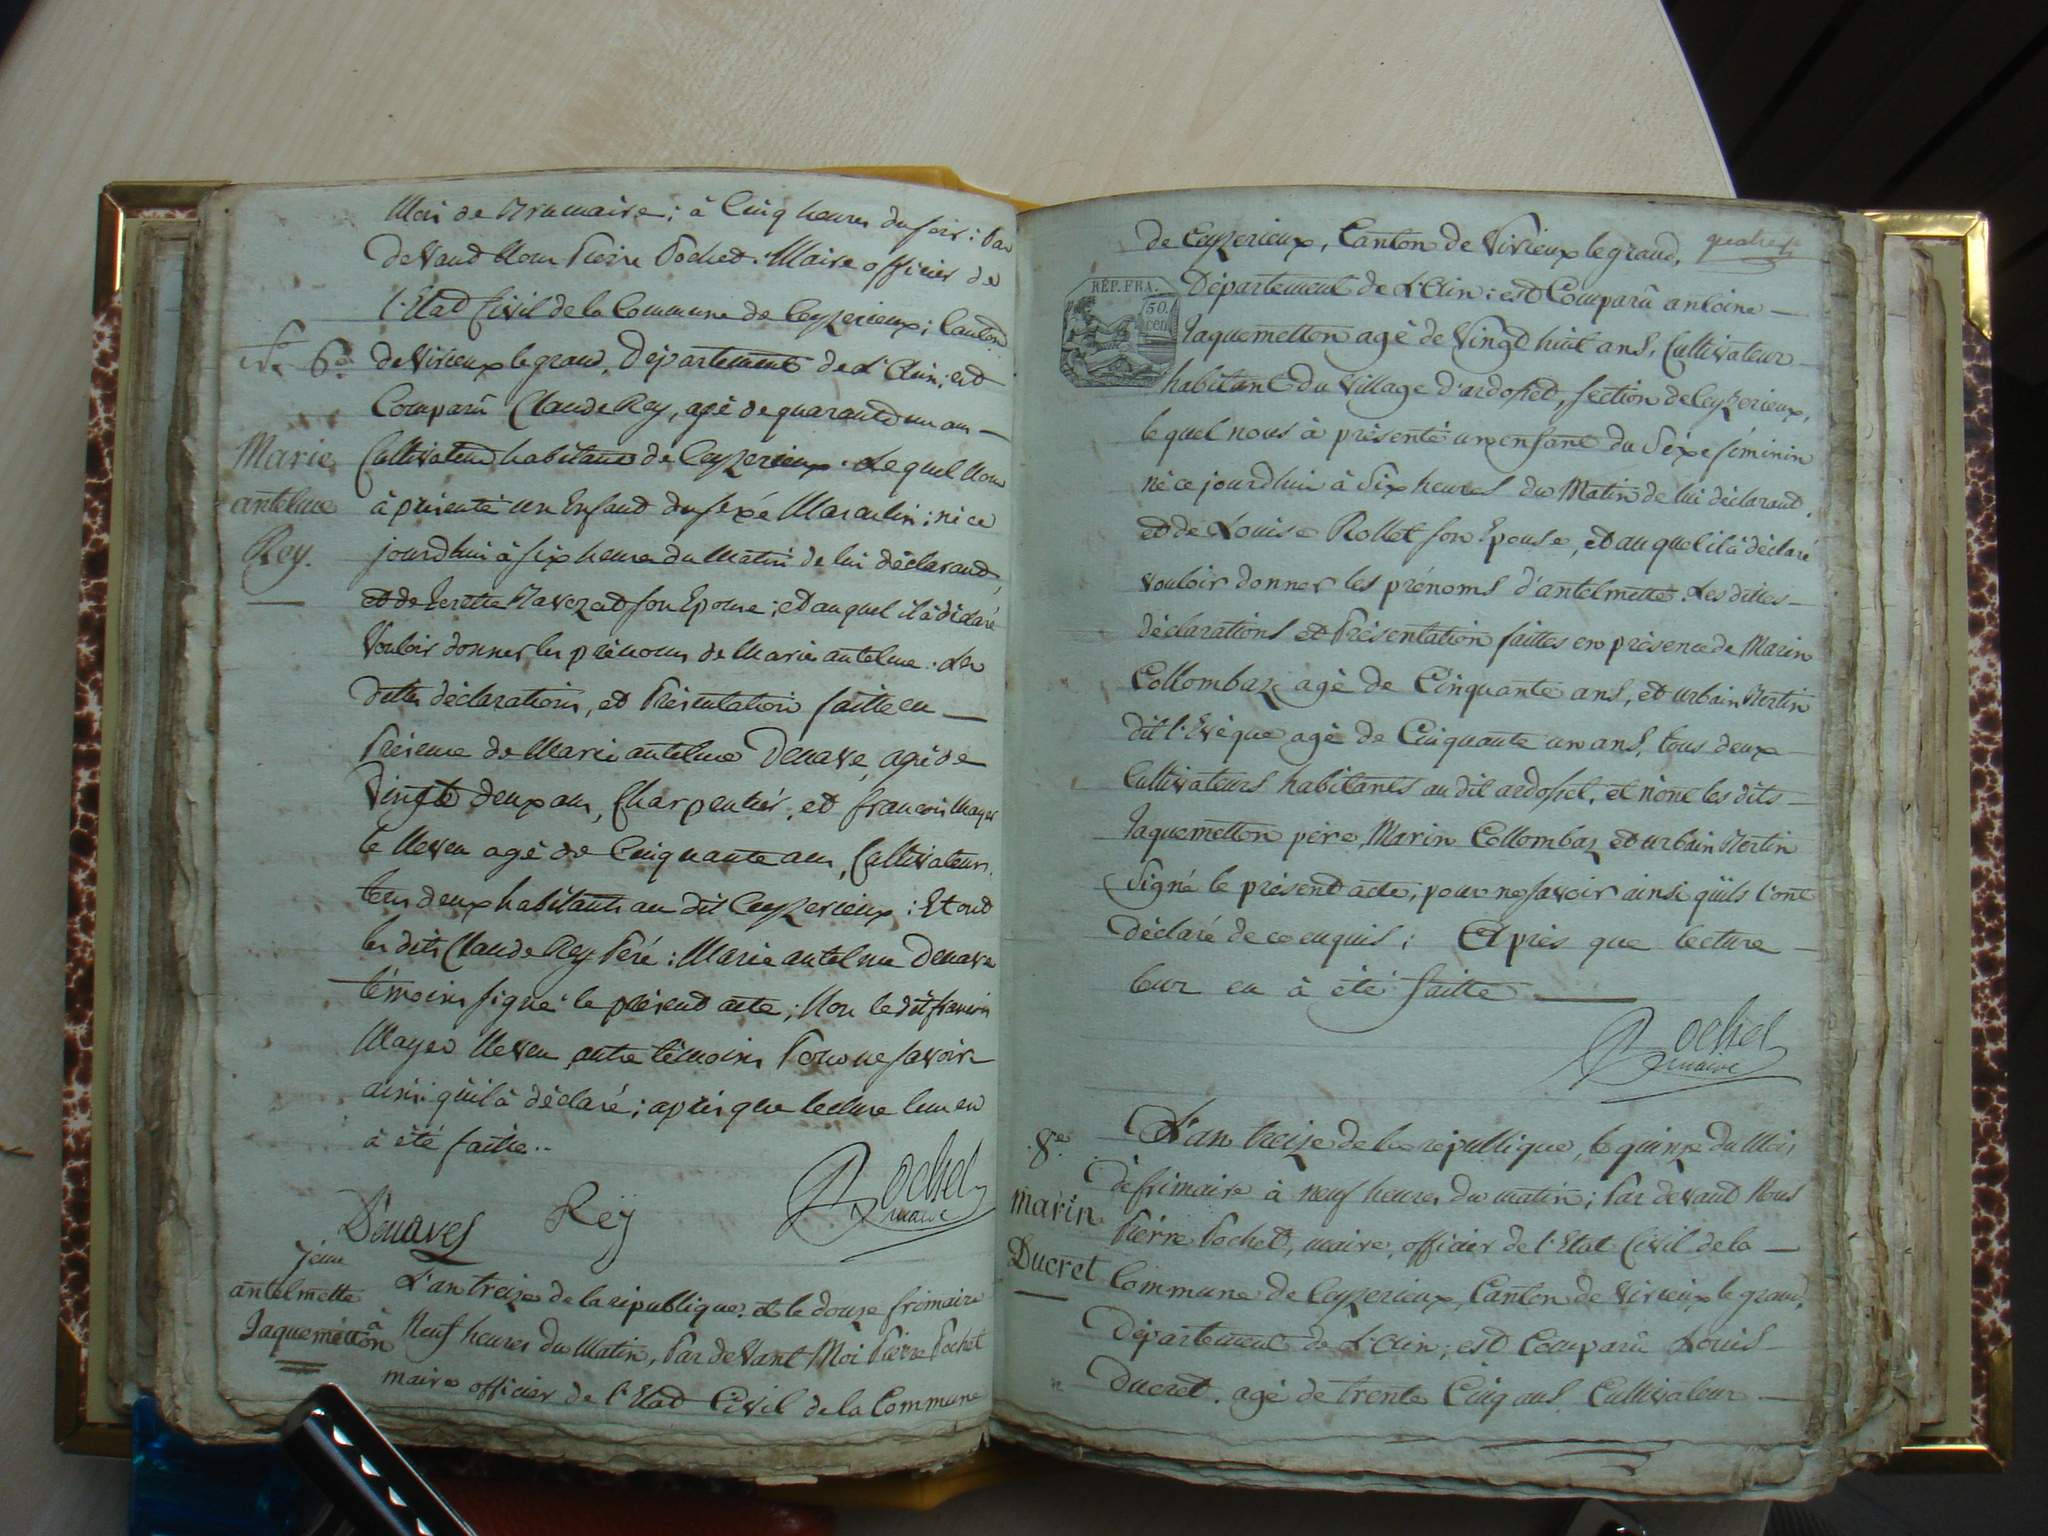 Mois de Brumaire ; à Cinq heures du soir : Par
devand Nous Pierre Pochet. Maire officier de
l'Etad Civil de la Commune de Ceyzerieux ; Canton
No 6e
de Virieux le grand, Département de L'Ain ; est
Comparû Claude Rey, agé de quarantd un ans —
Marie
antelme
Rey.
Cultivateur habitand de Ceyzerieux. Lequel Nous
à présenté un Enfand du sexé Masculin ; né ce
jourdhui à six heures du Matin de lui déclarand,
et de Son Epouse ; et auquel il à déclaré
Vouloir donner les prénoms de Marie antelme. Les
dites déclarations, et Présentation faitte en —
Présence de Marie antelme Denave, agé de
Vingtd deux ans, Charpentier, et francois Mayer
le Neveu agé de Cinquante ans, Cultivateurs.
tous deux habitants au dit Ceyzerieux : Et ond
les dits Claude Rey Peré : Marie antelme Denave
témoins signé le présend acte ; Non le dit francois
Mayer Neveu autre témoins Pour ne savoir
ainsi quil à déclaré ; après que lecture leur en
à été faitte..
Denaves Reÿ Pochet
maire
7eme
antelmette
Jaquemetton
L'an treize de la république et le douze frimaire
à Neuf heures du Matin, Par devant Moi Pierre Pochet
maire officier de l'Etad Civil de la Commune
de Ceyzerieux, Canton de Virieux le grand,
RÉP. FRA.
50.
cen
Département de L'Ain : est Comparû antoine —
Jaquemetton agé de Vingt huit ans, Cultivateur
habitant du Village d'ardosset, section de Ceyzerieux,
lequel nous à présenté un enfant du Séxe féminin
né ce jourdhui à Six heures du Matin de lui déclarand.
et de Louise Rollet son Epouse, et auquel il à déclaré
vouloir donner les prénoms d'antelmette. Les dittes —
déclarations et Présentation faittes en présence de Marin
Collombaz agé de Cinquante ans, et urbain Bertin
dit l'Evêque agé de Cinquante un ans, tous deux —
Cultivateurs habitants au dit ardosset, et n'ont les dits —
Jaquemetton père, Marin Collombaz et urbain Bertin
Signé le présend acte ; pour ne savoir ainsi quils l'ont
déclaré de ce enquis ; Après que lecture —
leur en à été faitte —
Pochet
maire
8e
Marin
Ducret
L'an treize de la république, le quinze du Mois
de frimaire à neuf heures du matin ; Par devand Nous
Pierre Pochet, maire, officier de l'Etat Civil de la —
Commune de Ceyzerieux, Canton de Virieux le grand,
Département de L'Ain ; est Comparû Louis —
Ducret. agé de trente Cinq ans Cultivateur —